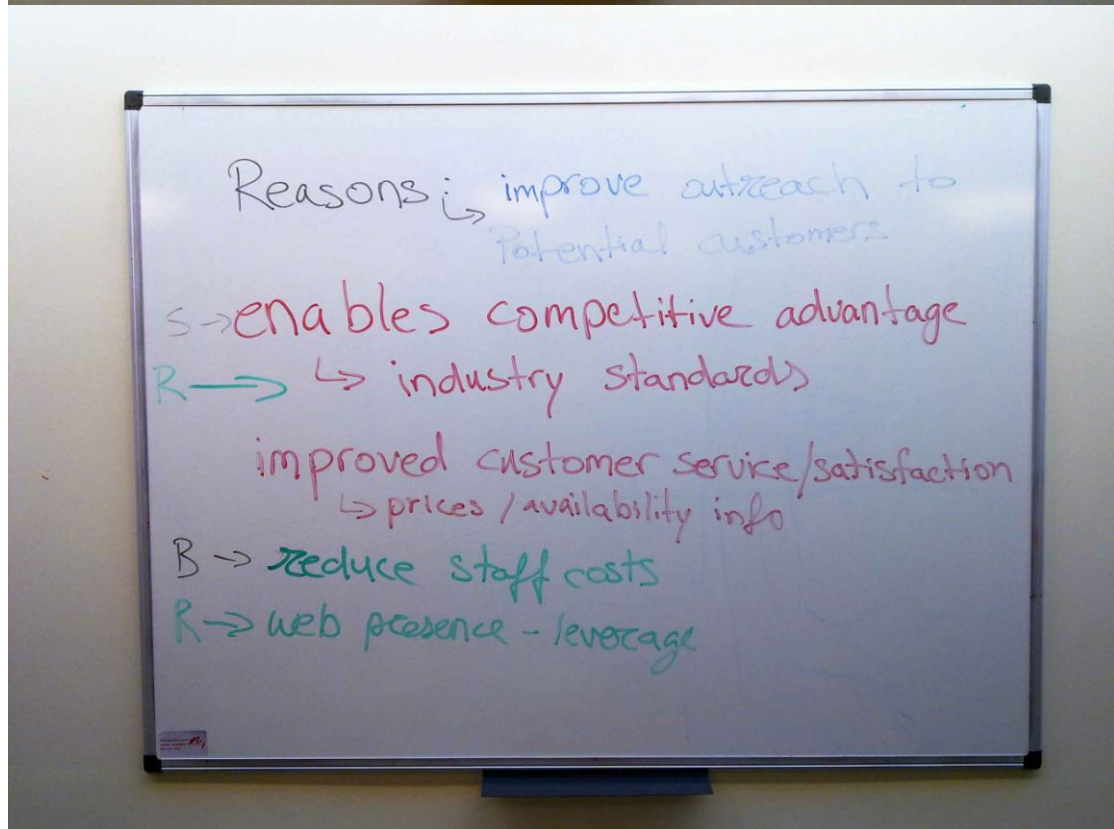 Reasons: ↳ improve outreach to
Potential customers
S → enables competitive advantage
R → ↳ industry standards
improved customer service/satisfaction
↳ prices / availability info
B → reduce staff costs
R → web presence - leverage